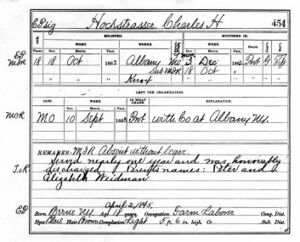 Hochstrasser, Charles H 454
ENLISTED. MUSTERED IN.
WHEN. WHERE. WHEN.
18 18 Oct 1862 Albany 3 Dec
18 Oct
Knox
LEFT THE ORGANIZATION.
WHEN. EXPLANATION.
MO 10 Sept with Co at Albany Ny.
REMARKS: M&R Absent without leave.
Served nearly one year and was honorably
discharged. Parents names: Peter and
Elizabeth Weidman
April 2, 1845.
Born Berne Ny Age 18 years Occupation Farm Labor Cong. Dist.
Eyes Blue Hair Brown Complexion Light 5 ft. 6 in. high Co.